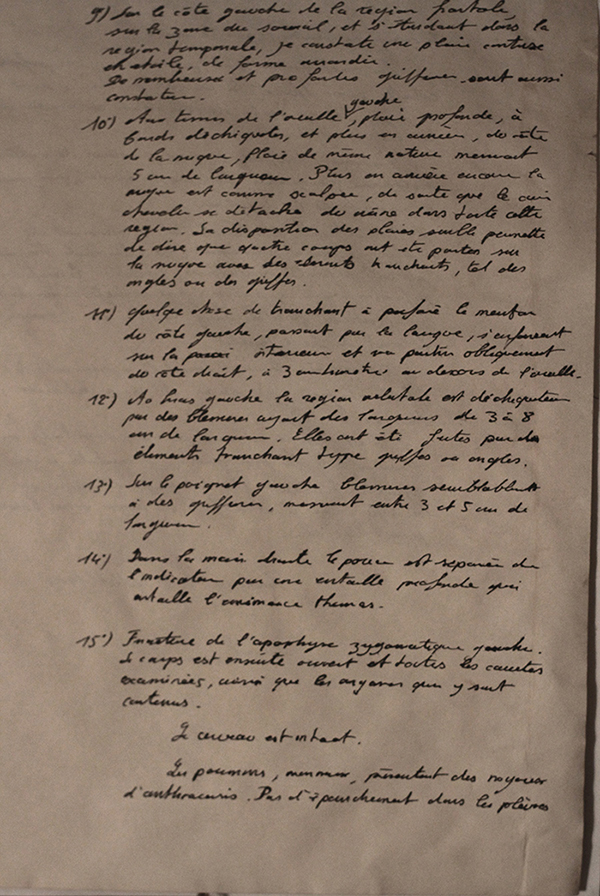 9°) Sur le côté gauche de la région
sur la zone du sourcil, et s'étendant dans la
région temporale, je constate une plaie contuse
en étoile, de forme arrondie.
De nombreuses et profondes griffures sont aussi
10°) Aux de l'oreille gauche, plaie profonde, à
bords déchiquetés, et plus en arrière, du côté
de la nuque, plaie de même nature mesurant
5 cm de largeur. Plus en arrière encore la
nuque est comme scalpée, de sorte que le cuir
chevelu se détache de même dans toute cette
région. La disposition des plaies semble permettre
de dire que quatre coups ont été portés sur
la nuque avec des éléments tranchants, tel des
ongles ou des griffes.
11°) Quelque chose de tranchant a perforé le menton
du côté gauche, passant par la langue, s'enfonçant
sur la paroi et va partir obliquement
du côté droit, à 3 centimètres au dessous de l'oreille.
12°) Au bras gauche la région est déchiquetée
par des blessures ayant des largeurs de 3 à 8
cm de largeur. Elles ont été faites par des
éléments tranchant type griffes ou ongles.
13°) Sur le poignet gauche blessures semblables
à des griffures, mesurant entre 3 et 5 cm de
largeur.
14°) Dans la main droite le pouce est séparé de
l'indicateur par une entaille profonde qui
entaille l'éminence thenar.
15°) Fracture de l'apophyse zygomatique gauche.
Le corps est ensuite ouvert et toutes les cavités
examinées, ainsi que les organes qui y sont
contenus.
Le cerveau est intact.
Les poumons, présentent des noyaux
d'anthracosis. Pas d'épanchement dans les plèvres